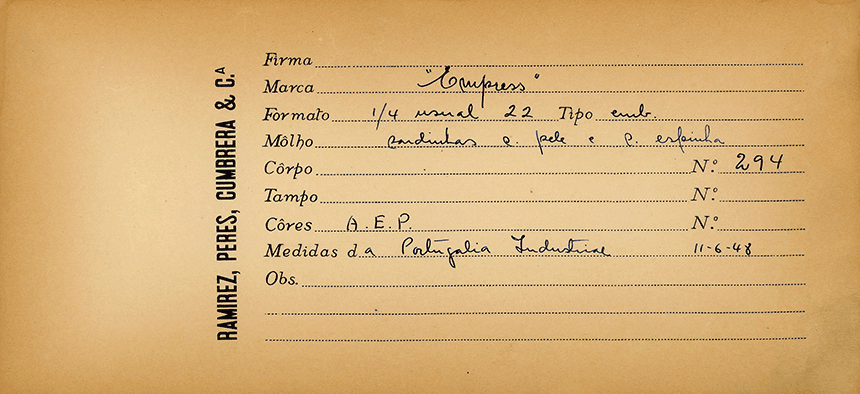 RAMIREZ, PERES, CUMBRERA & C.ᴬ
Firma
Marca "Empress"
Formato 1/4 usual 22 Tipo emb.
Môlho sardinhas s. pele e s. espinha
Côrpo N.º 294
Tampo N.º
Côres A.E.P. N.º
Medidas da Portugalia Industriae 11-6-48
Obs.